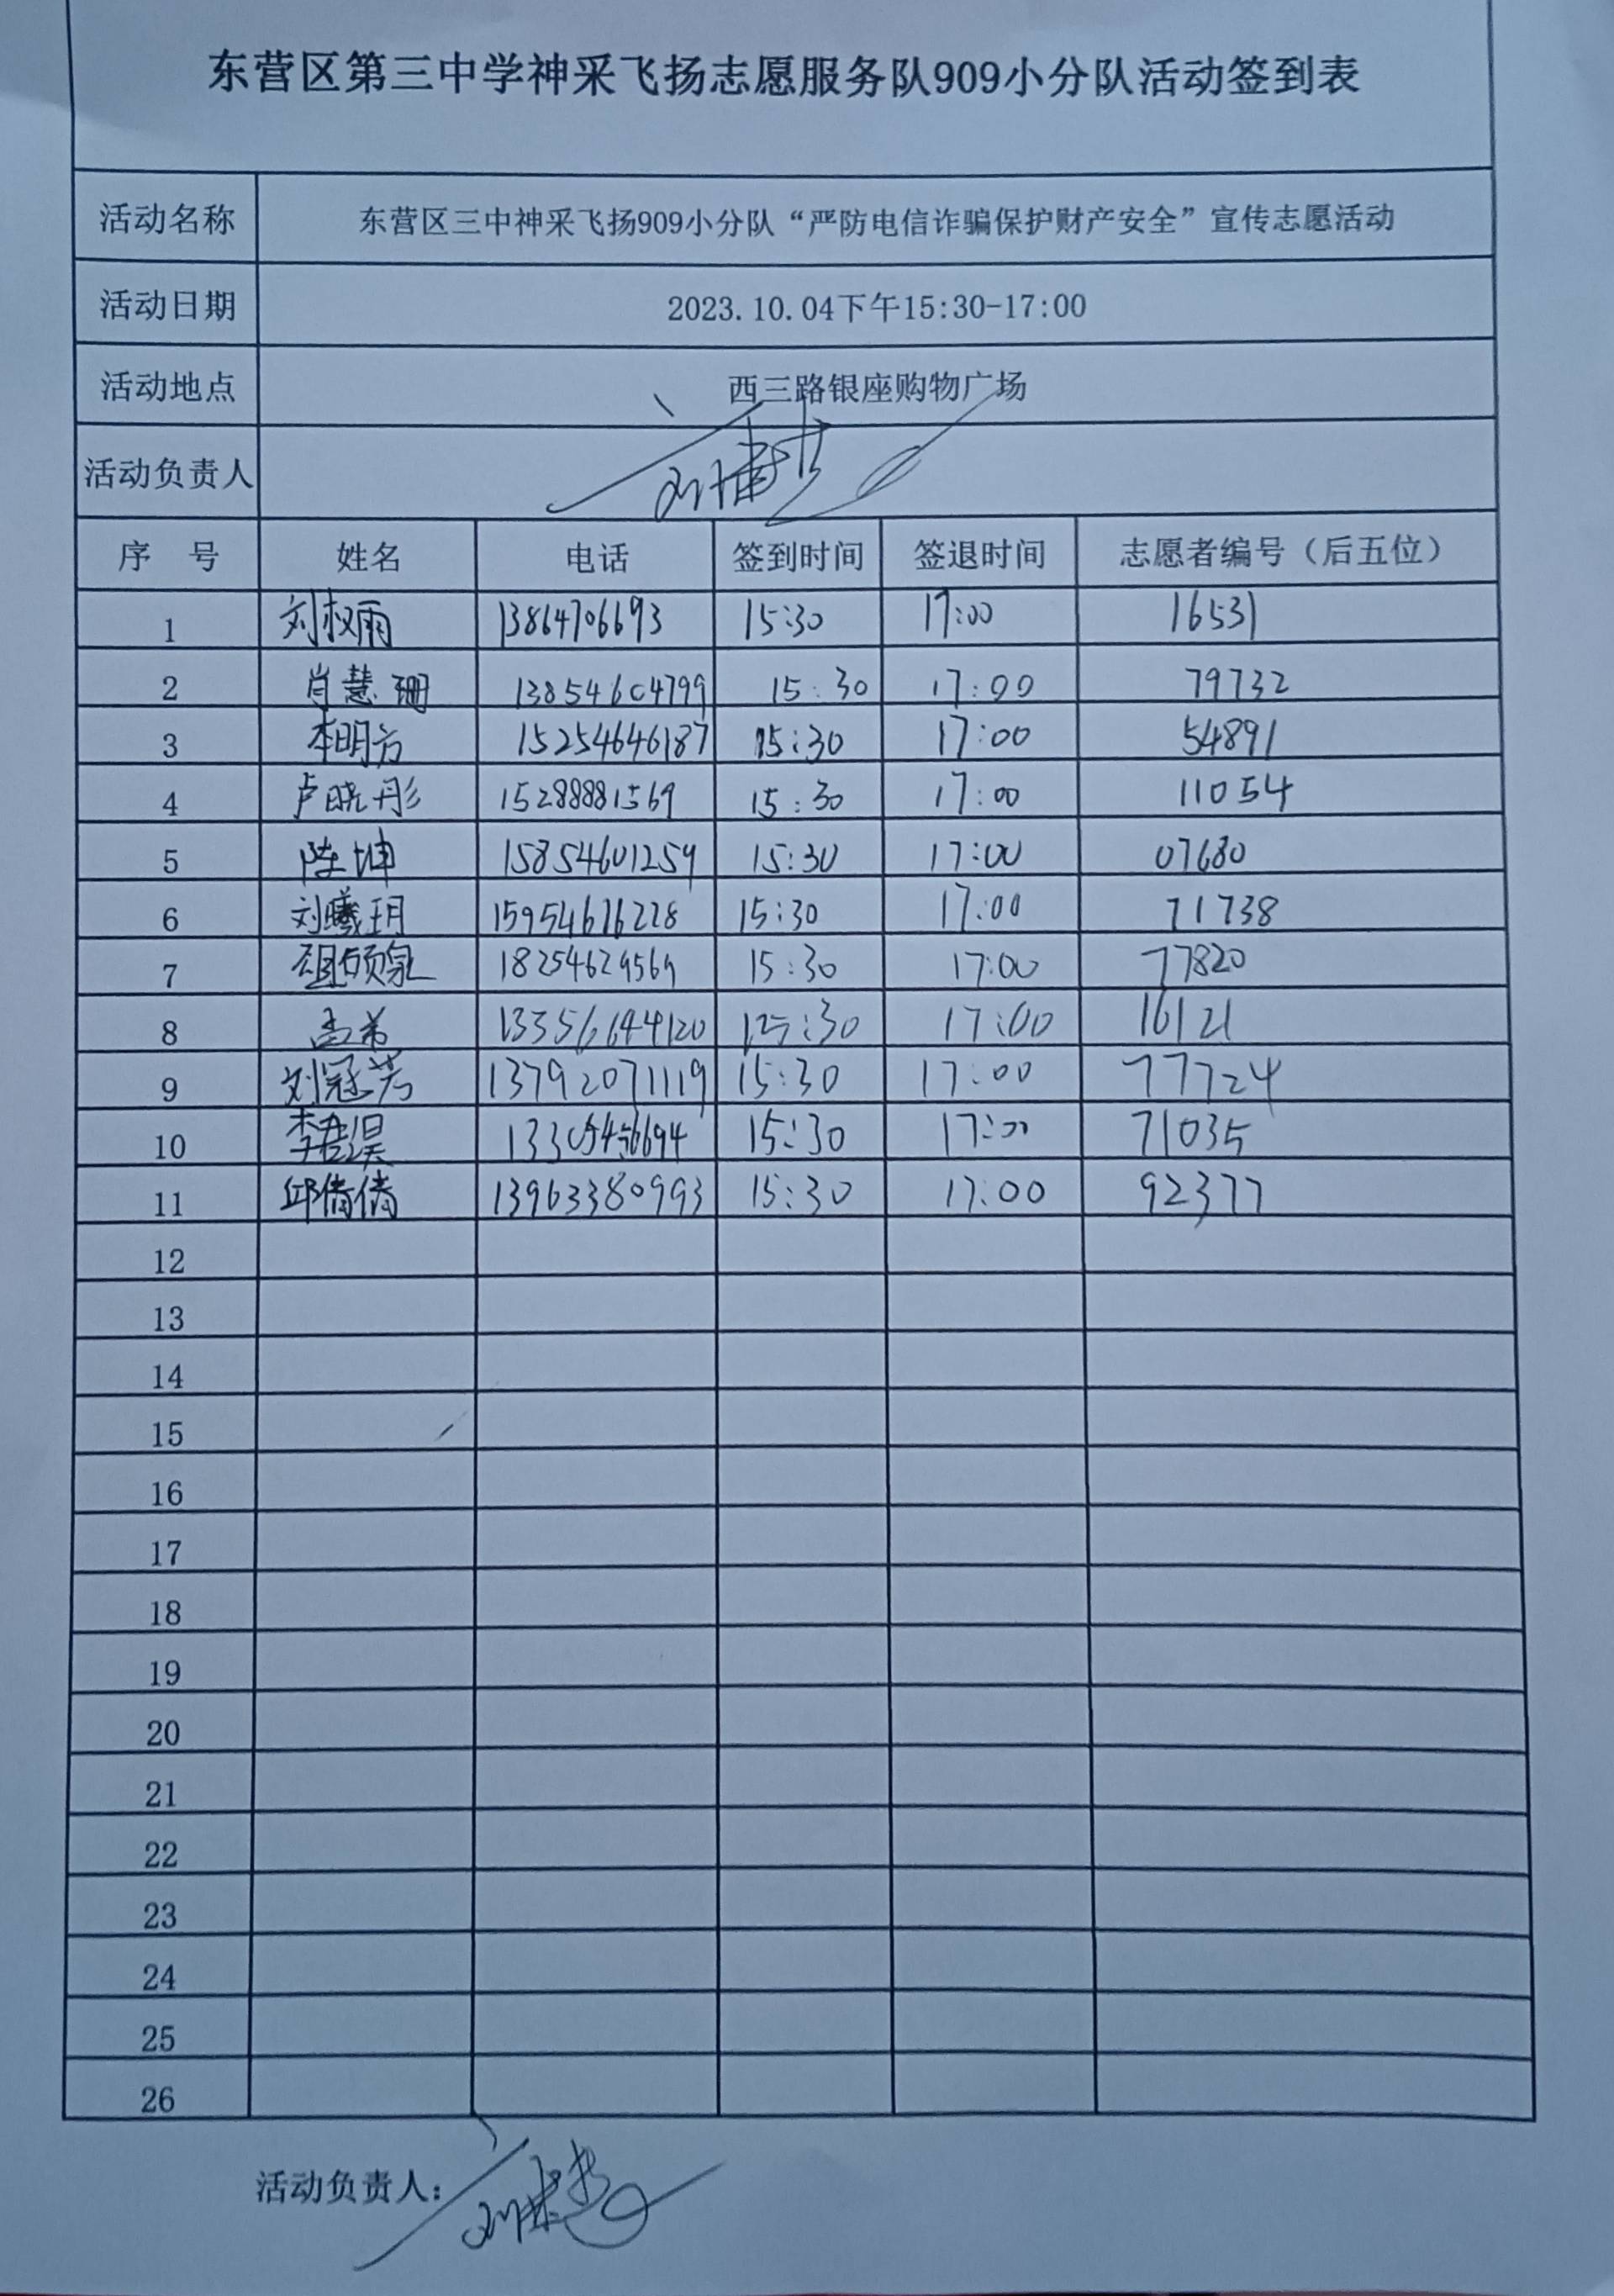 东营区第三中学神采飞扬志愿服务队909小分队活动签到表
活动名称 东营区三中神采飞扬909小分队“严防电信诈骗保护财产安全”宣传志愿活动
活动日期 2023.10.04下午15:30-17:00
活动地点 西三路银座购物广场
活动负责人
序 号 姓名 电话 签到时间 签退时间 志愿者编号（后五位）
1 刘权雨 13864706693 15:30 17:00 16531
2 肖慧珊 13854604799 15:30 17:00 79732
3 李明方 15254646187 15:30 17:00 54891
4 卢晓彤 15288881569 15:30 17:00 11054
5 陈坤 15854601259 15:30 17:00 07680
6 刘曦玥 15954676228 15:30 17:00 71738
7 18254629569 15:30 17:00 77820
8 13356644120 15:30 17:00 16121
9 刘冠芳 13792071119 15:30 17:00 77724
10 15:30 17:00 71035
11 邱倩倩 13963380993 15:30 17:00 92377
12
13
14
15
16
17
18
19
20
21
22
23
24
25
26
活动负责人：